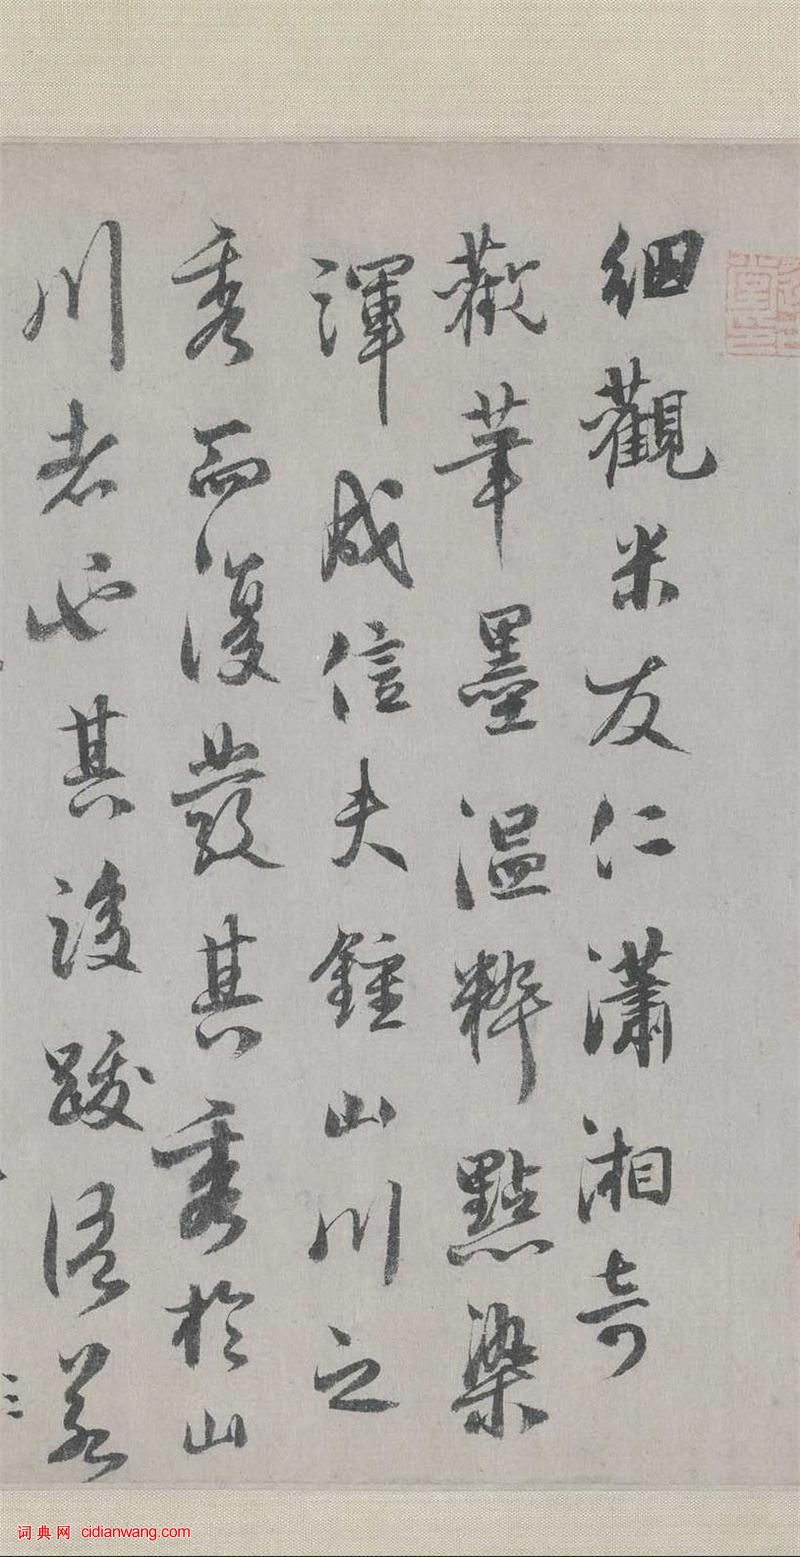 細觀米友仁瀟湘奇
觀筆墨溫粹點染
渾成信夫鍾山川之
秀而復發其秀於山
川者也其後跋語若
词典网 cidianwang.com